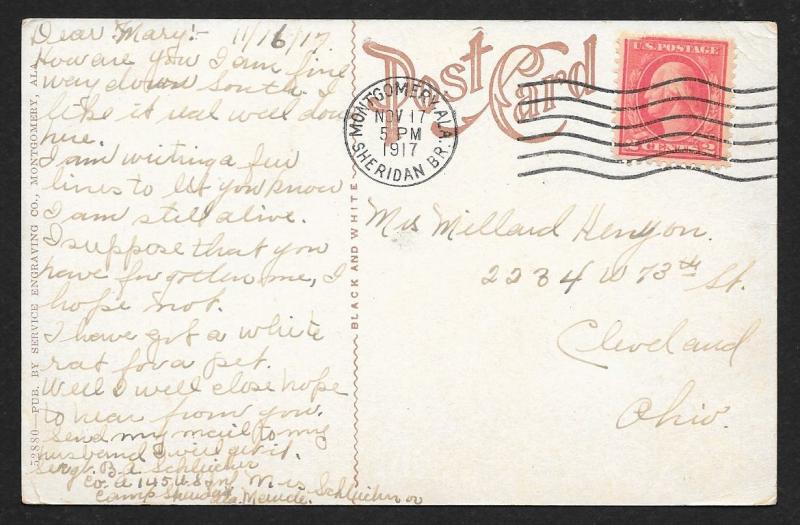 Dear Mary:- 11/16/17
How are you I am fine
way down south I
like it real well down
here.
I am writing a few
lines to let you know
I am still alive.
I suppose that you
have forgotten me, I
hope not.
I have got a white
rat for a pet.
Well I will close hope
to hear from you.
Send my mail to my
husband I will get it.
Sergt. B. A. Schleicher
Co. A 145 U.S. Inf
Camp Sheridan
Ala.
Mrs Schleicher or
Maude.
52880—PUB. BY SERVICE ENGRAVING CO., MONTGOMERY, ALA.
BLACK AND WHITE
Post Card
MONTGOMERY, ALA.
NOV 17
5 PM
1917
SHERIDAN BR.
U.S. POSTAGE
2 CENTS 2
Mrs Millard Kenyon.
2234 W 73th St.
Cleveland
Ohio.